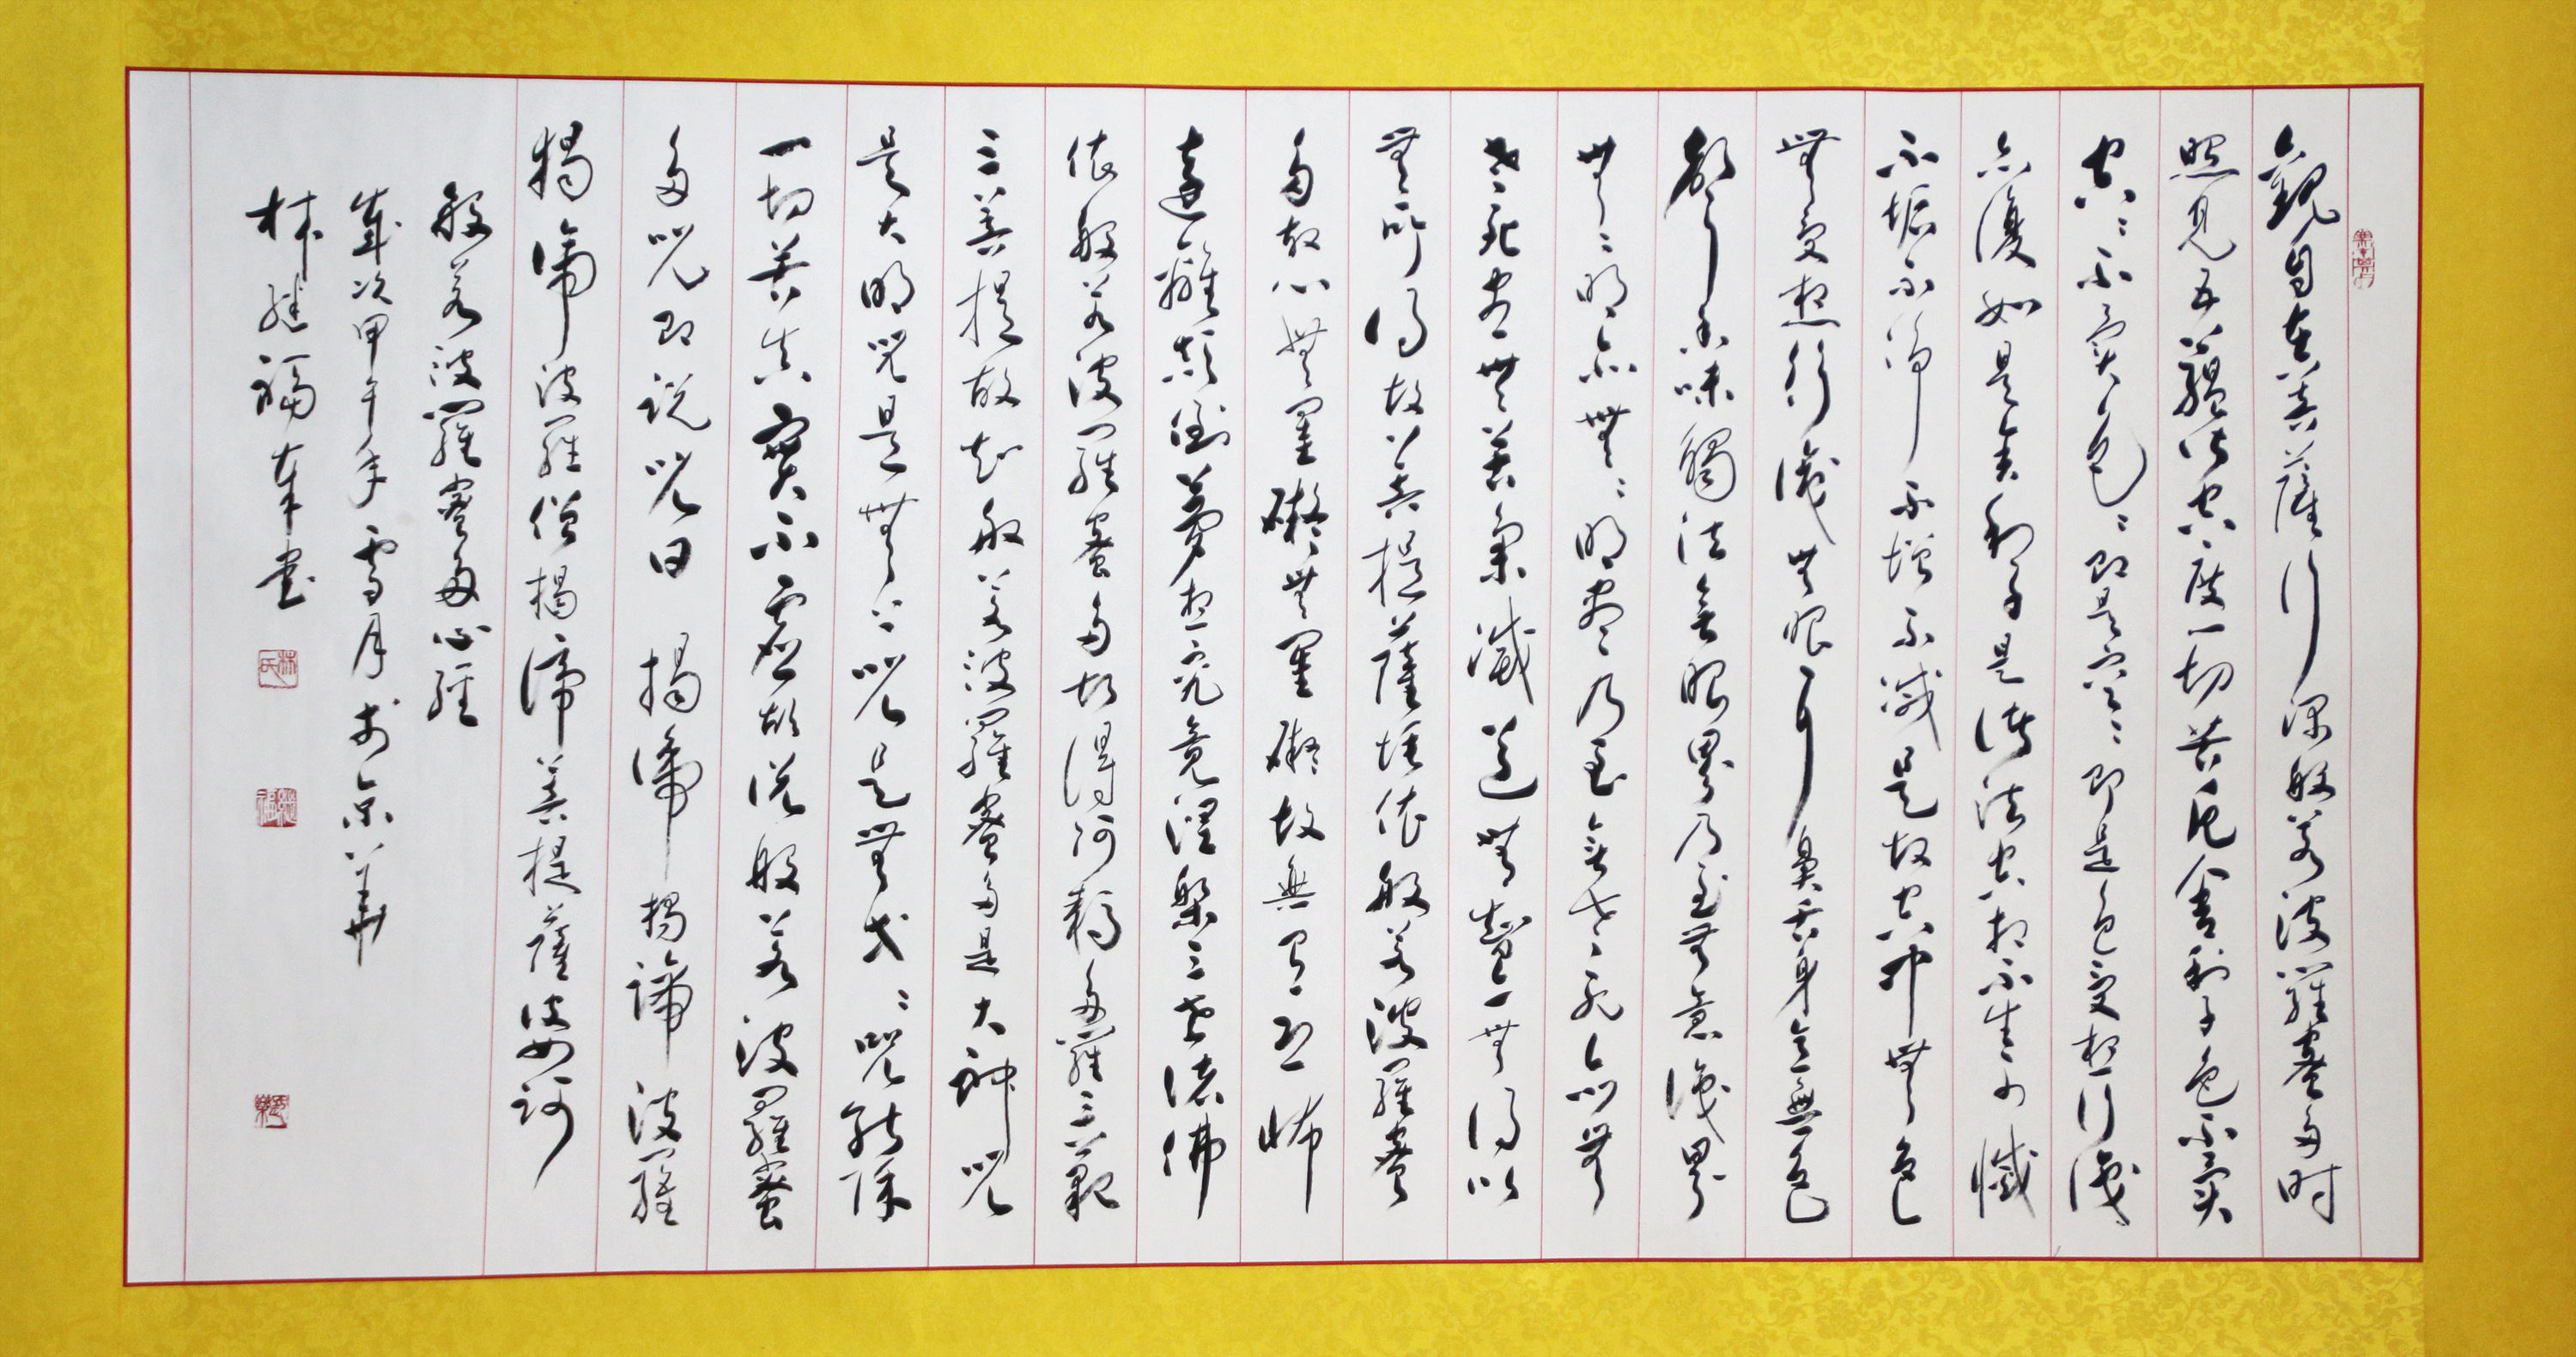 觀自在菩薩行深般若波羅蜜多時
照見五蘊皆空度一切苦厄舍利子色不異
空々不異色々即是空々即是色受想行識
亦復如是舍利子是諸法空相不生不滅
不垢不淨不增不減是故空中無色
無受想行識無眼耳鼻舌身意無色
聲香味觸法無眼界乃至無意識界
無々明亦無々明盡乃至無老死亦無
老死盡無苦集滅道無智亦無得以
無所得故菩提薩埵依般若波羅蜜
多故心無罣礙無罣礙故無有恐怖
遠離顛倒夢想究竟涅槃三世諸佛
依般若波羅蜜多故得阿耨多羅三藐
三菩提故知般若波羅蜜多是大神咒
是大明咒是無上咒是無等々咒能除
一切苦真實不虛故說般若波羅蜜
多咒即說咒曰 揭諦揭諦波羅
揭諦波羅僧揭諦菩提薩婆訶
般若波羅蜜多心經
歲次甲午年雪月於京華
林繼福奉書
林氏
繼福